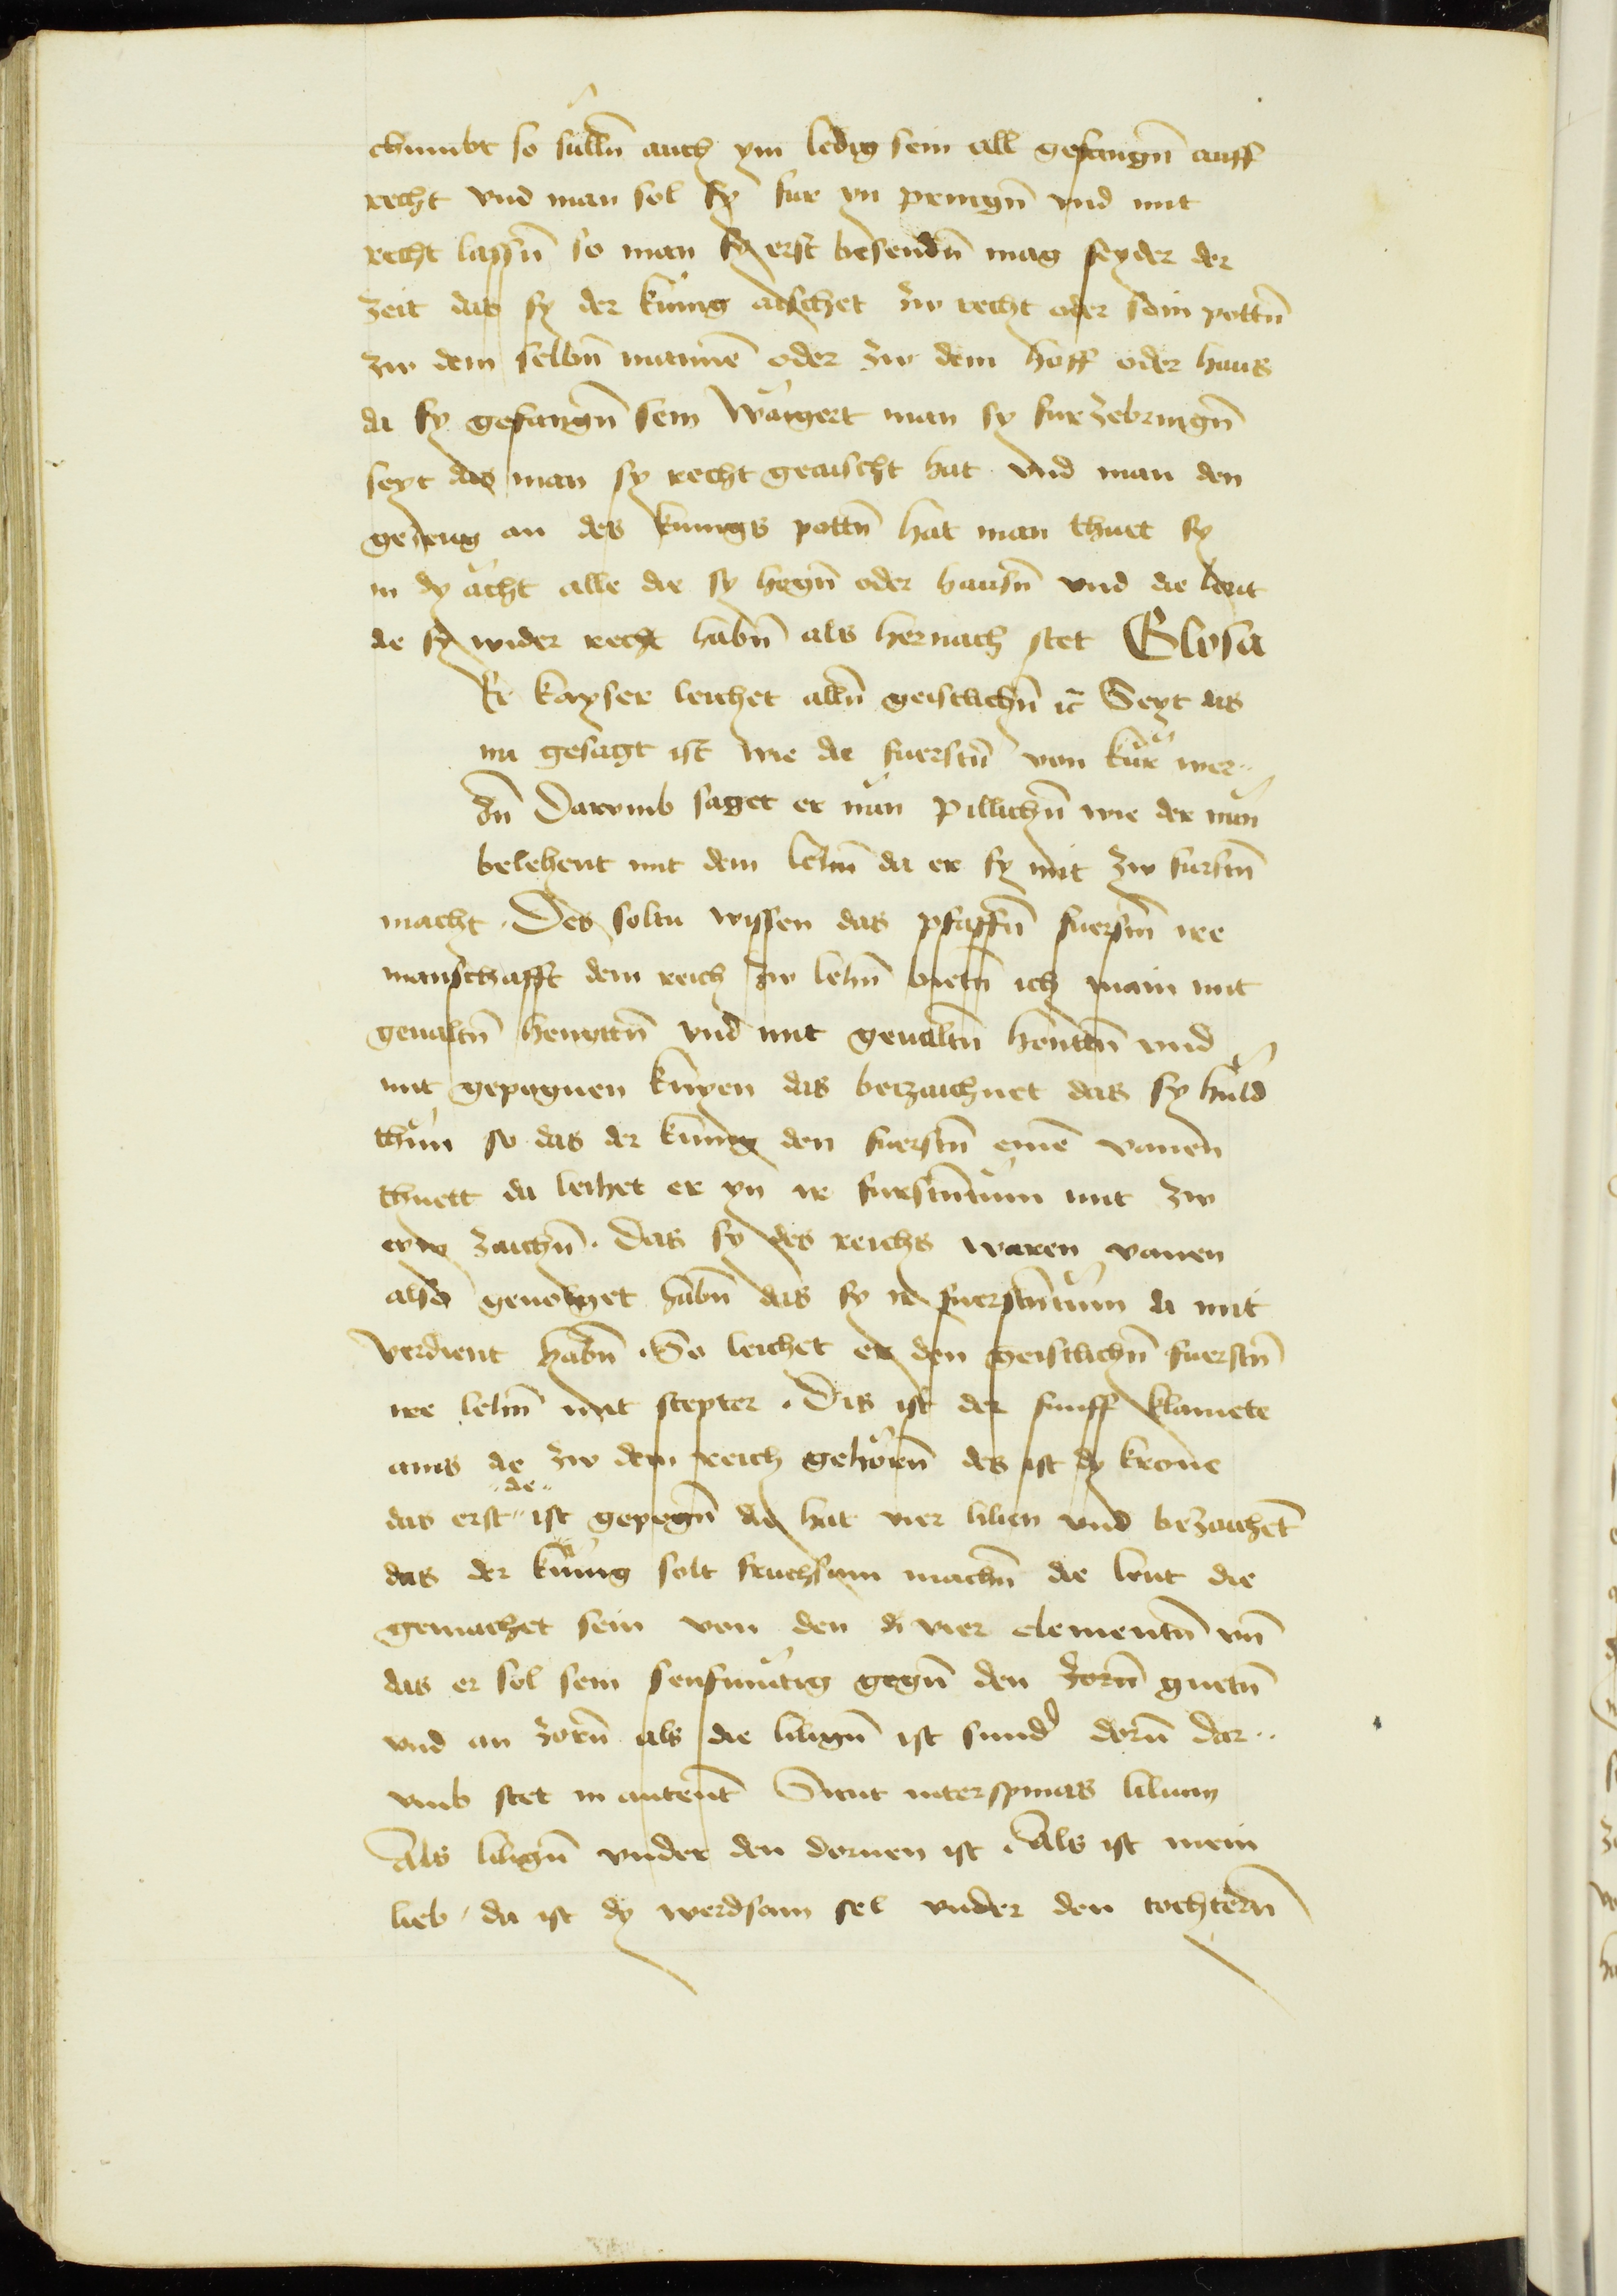 chumbt so sullñ auch ym ledig sein all gefangñ auff
recht vnd man sol sy fur yn pringñ vnd mit
recht lassñ so man sy erst besendñ mag seyder der
zeit das sy der kunig aischet zw recht oder sein pottñ
zw dem selbñ mannē oder zw dem hoff oder haus
da sy gefangñ sein Waigert man sy fur zebringñ
seyt das man sy recht geaischt hat vnd man den
gezeug an des kunigs pottñ hat man thuet sy
in dy ächt alle die sy hegñ oder hausñ vnd die leut
die sy wider recht habñ als hernach stet Glosa
Er kayser leichet allñ geistlichñ ic̃ Seyt das
nu gesagt ist wie die fuerstñ von kür wer¨
dñ Darvmb saget er nün pillichñ wie der nün
belehent mit dem lehñ da er sy mit zw furstñ
macht . Des soltu wissen das pfaffñ fuerstñ ire
manschafft dem reich zw lehñ bietñ ich main mit
geualtñ henntñ vnd mit geualtñ henttñ vnd
mit gepognen knyen das bezaichnet das sy huld
thün so das der kunig den fuerstñ einē vanen
thuett da leihet er yn ir furstntum mit zw
eym zaichñ . das sy des reichs waren vanen
also geuolget habñ das sy ir fuerstntum da mit
verdient habñ . So leichet er den geistlichñ fuerstñ
ire lehñ mit scepter . Dis ist der funff klainete
ains die zw dem reich gehörñ des ist dy krone
das erst ¨die¨ ist gepogñ die hat vier lilien vnd bezaichēt
das der kunig solt fruchsam machñ die leut die
gemachet sein von den di vier elementñ vñ
das er sol sein senfmütig gegñ den zorñ guetñ
vnd an zorñ als die liligñ ist sunder dorñ dar¨
vmb stet in cantent Sicut inter spinas lilium
Als liligñ vnder den dornen ist . Als ist mein
lieb / da ist dy werdsam sel vnder den tochterñ